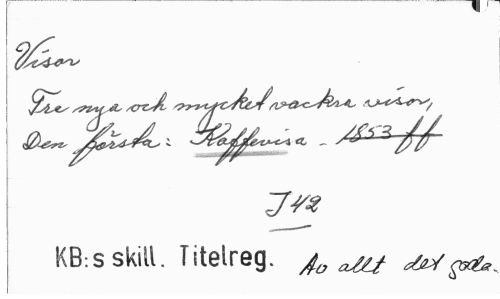 Visor
Tre nya och mycket vackra visor,
Den första: Kaffevisa - 1853 ff
J 42
KB:s skill. Titelreg. Av allt det goda.